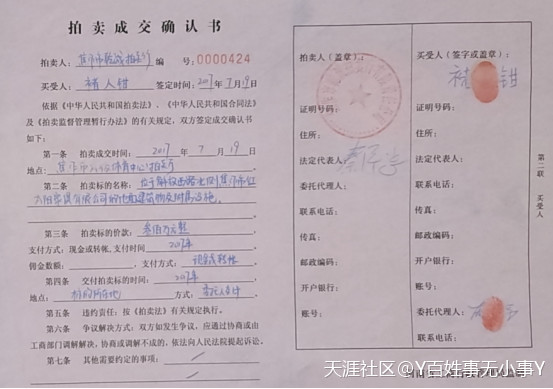 拍卖成交确认书
拍卖人：焦作市 编 号：0000424
买受人：褚人钳 签定时间：2017年7月19日
依据《中华人民共和国拍卖法》、《中华人民共和国合同法》
及《拍卖监督管理暂行办法》的有关规定，双方签定成交确认书
如下：
第一条 拍卖成交时间：2017年7月19日
地点：焦作市 体育中心
第二条 拍卖标的名称：位于解放西路 焦作市红
太阳 有限公司的 建筑物及附属设施
第三条 拍卖标的价款：叁佰万元整
支付方式：现金或转帐，支付时间 2017年
佣金数额： ，支付方式： 转帐
第四条 交付拍卖标的时间：2017年
地点：标的所在地 方式：
第五条 违约责任：按《拍卖法》有关规定执行。
第六条 争议解决方式：双方如发生争议，应通过协商或由
工商部门调解解决，协商或调解不成的，依法向人民法院提起诉讼。
第七条 其他需要约定的事项：
拍卖人（盖章）：
证明号码：
住所：
法定代表人：
委托代理人：
联系电话：
传真：
邮政编码：
开户银行：
账号：
买受人（签字或盖章）：
褚 钳
证明号码：
住所：
法定代表人：
联系电话：
传真：
邮政编码：
开户银行：
账号：
委托代理人：
联系电话：
第二联 买受人
天涯社区@Y百姓事无小事Y